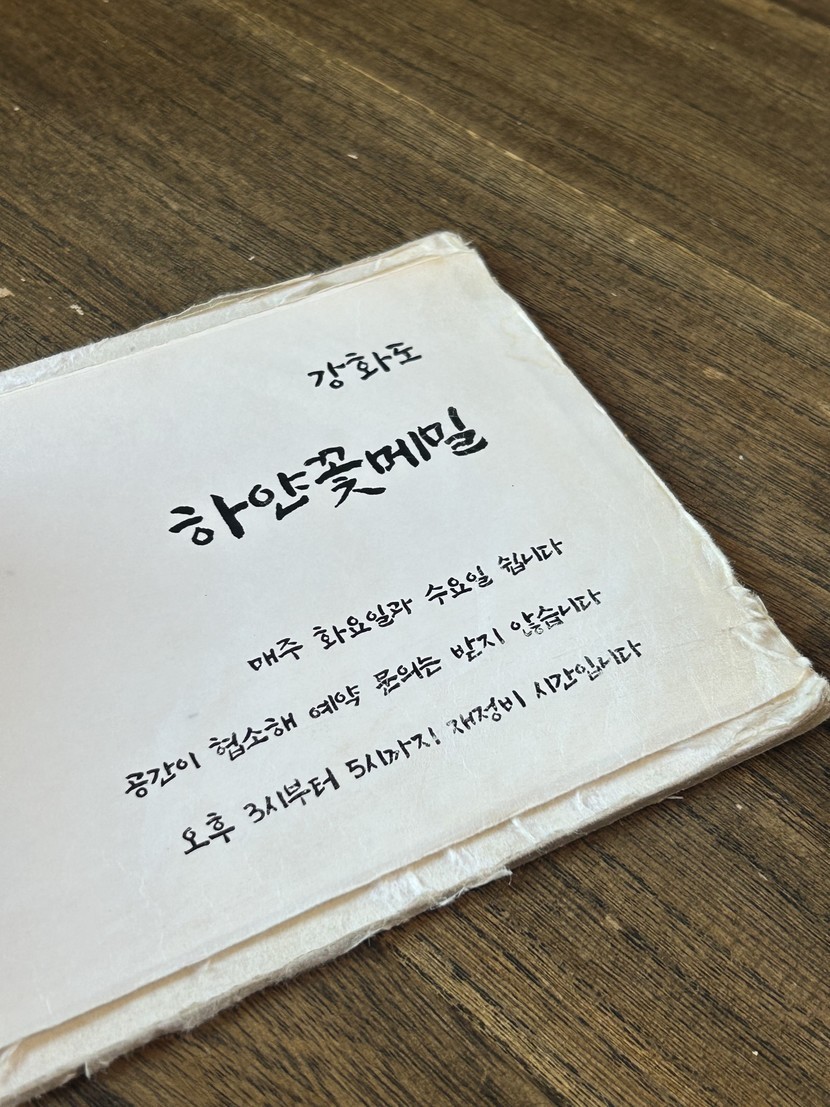 강화도
하얀꽃메밀
매주 화요일과 수요일 쉽니다
공간이 협소해 예약 문의는 받지 않습니다
오후 3시부터 5시까지 재정비 시간입니다